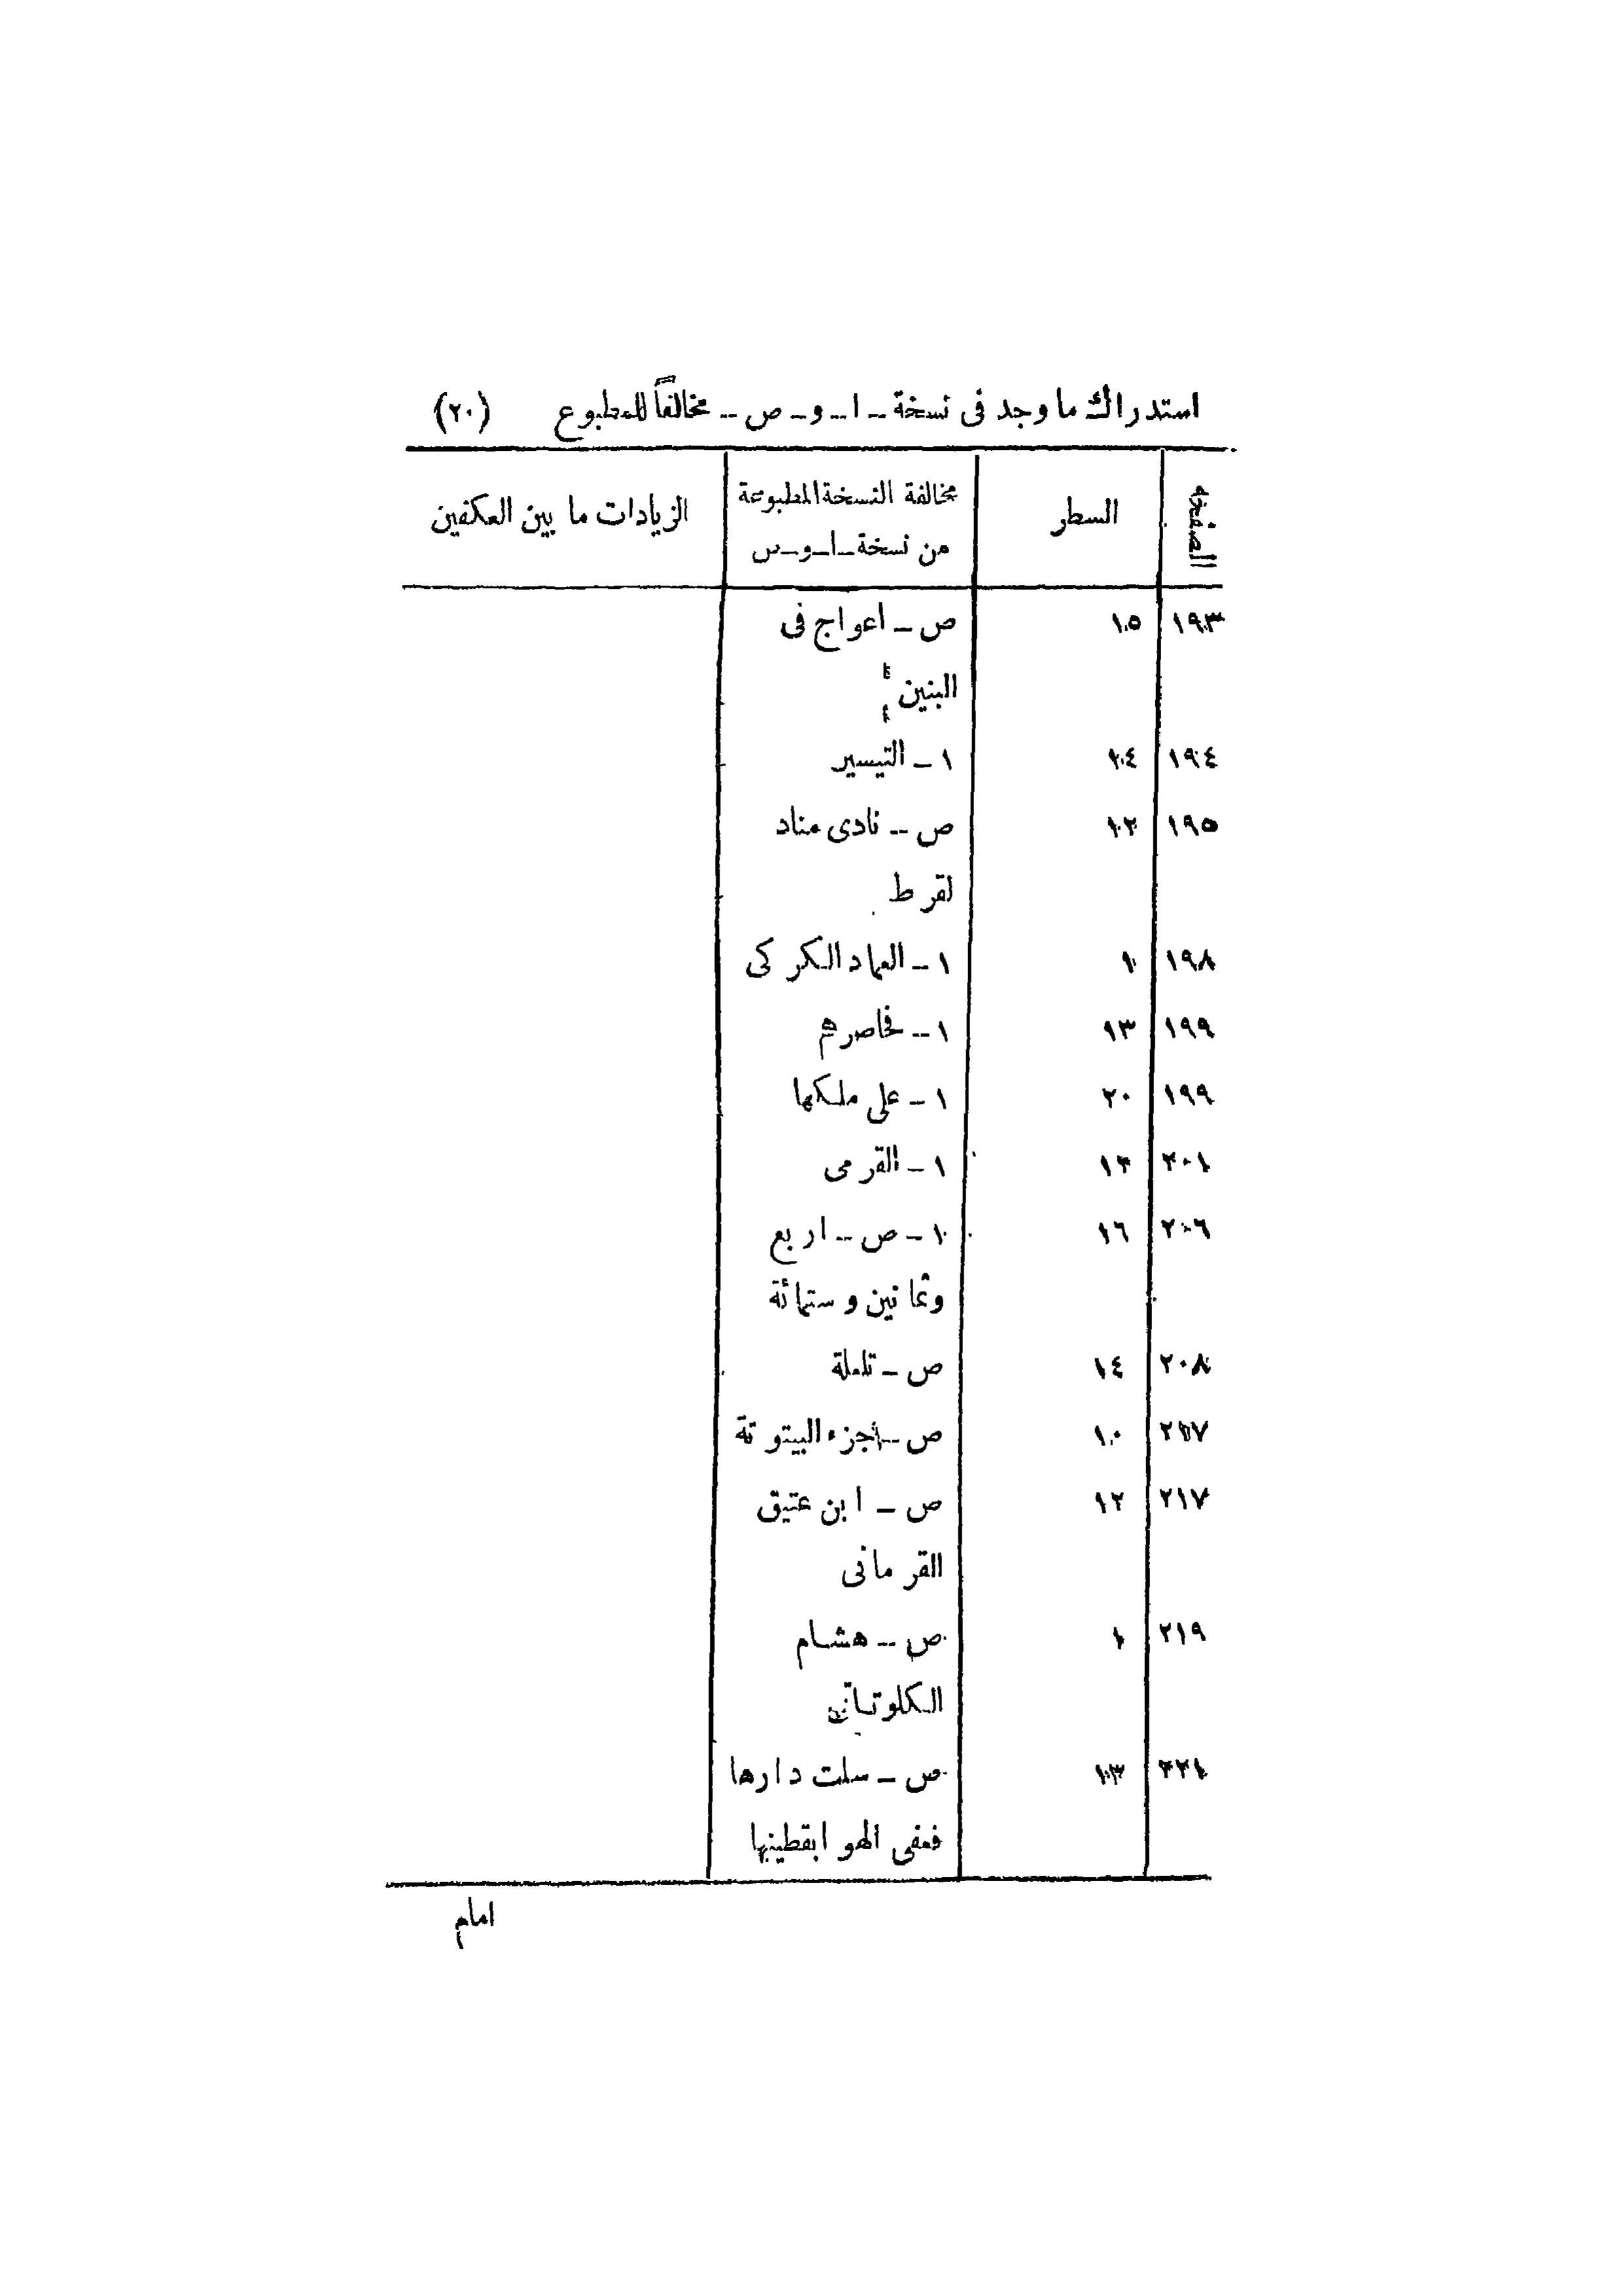 استدراك ما وجد فى نسخة ــ ا ــ و ــ ص ــ مخالفاً للمطبوع (٢٠)
الصفحة السطر مخالفة النسخة المطبوعة من نسخة ــ ا ــ و ــ س الزيادات ما بين العكفين
١٩٣ ١٥ ص ــ اعواج فى
البنين
١٩٤ ١٤ ١ ــ التيسير
١٩٥ ١٢ ص ــ نادى مناد
لقرط
١٩٨ ١ ١ ــ العماد الكركى
١٩٩ ١٣ ١ ــ فحاصرهم
١٩٩ ٢٠ ١ ــ على ملكها
٢٠١ ١٣ ١ ــ القرمى
٢٠٦ ١٦ ١ ــ ص ــ اربع
وثمانين وستمائة
٢٠٨ ١٤ ص ــ تلملة
٢١٧ ١٠ ص ــ جزء البيتوتة
٢١٧ ١٢ ص ــ ابن عتيق
القرمانى
٢١٩ ١ ص ــ هشام
الكلوتاتى
٢٢١ ١٣ ص ــ سلت دارها
فمفى الهوا بقطينها
امام